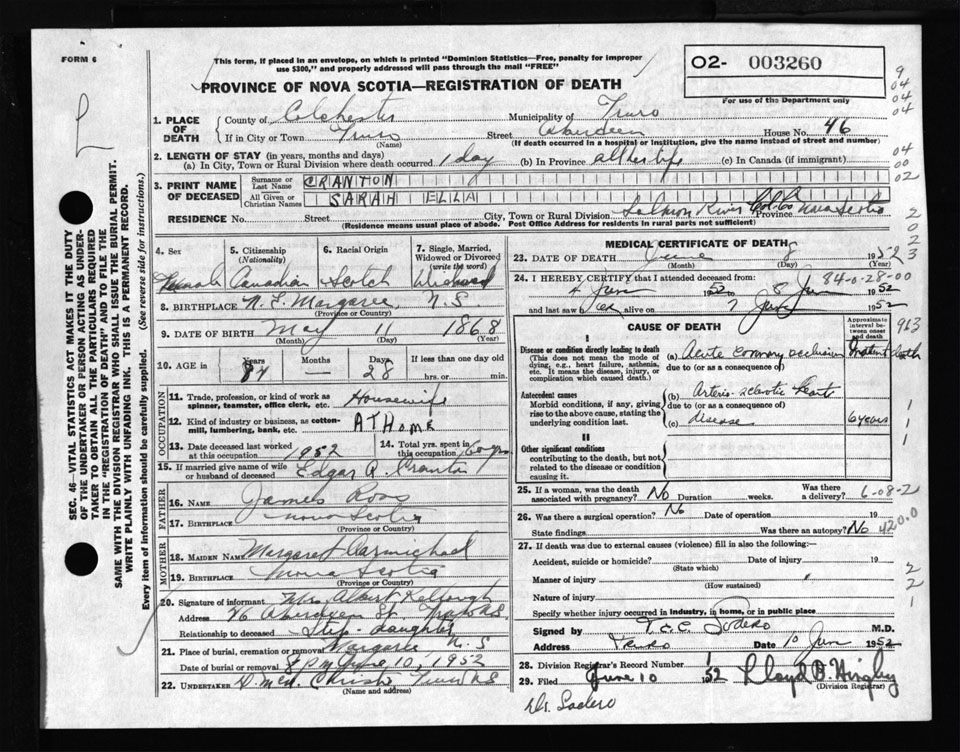 FORM 6
This form, if placed in an envelope, on which is printed "Dominion Statistics—Free, penalty for improper
use $300," and properly addressed will pass through the mail "FREE"
02- 003260
For use of the Department only
PROVINCE OF NOVA SCOTIA—REGISTRATION OF DEATH
1. PLACE OF DEATH
County of Colchester Municipality of Truro
If in City or Town Truro Street Aberdeen House No. 46
(Name) (If death occurred in a hospital or institution, give the name instead of street and number)
2. LENGTH OF STAY (in years, months and days)
(a) In City, Town or Rural Division where death occurred 1 day (b) In Province all her life (c) In Canada (if immigrant)
3. PRINT NAME OF DECEASED
Surname or Last Name CRANTON
All Given or Christian Names SARAH ELLA
RESIDENCE No. Street City, Town or Rural Division Salmon River Col. Co. Province Nova Scotia
(Residence means usual place of abode. Post Office Address for residents in rural parts not sufficient)
SEC. 46—VITAL STATISTICS ACT MAKES IT THE DUTY
OF THE UNDERTAKER OR PERSON ACTING AS UNDER-
TAKER TO OBTAIN ALL THE PARTICULARS REQUIRED
IN THE "REGISTRATION OF DEATH" AND TO FILE THE
SAME WITH THE DIVISION REGISTRAR WHO SHALL ISSUE THE BURIAL PERMIT.
WRITE PLAINLY WITH UNFADING INK. THIS IS A PERMANENT RECORD.
Every item of information should be carefully supplied. (See reverse side for instructions.)
4. Sex Female
5. Citizenship (Nationality) Canadian
6. Racial Origin Scotch
7. Single, Married, Widowed or Divorced (write the word) Widowed
8. BIRTHPLACE N. E. Margaree, N.S.
(Province or Country)
9. DATE OF BIRTH May 11 1868
(Month) (Day) (Year)
10. AGE in Years 84 Months — Days 28 If less than one day old hrs. or min.
OCCUPATION
11. Trade, profession, or kind of work as spinner, teamster, office clerk, etc. Housewife
12. Kind of industry or business, as cotton-mill, lumbering, bank, etc. AT Home
13. Date deceased last worked at this occupation 1952
14. Total yrs. spent in this occupation 60 yrs
15. If married give name of wife or husband of deceased Edgar R. Cranton
FATHER
16. NAME James Ross
17. BIRTHPLACE Nova Scotia
(Province or Country)
MOTHER
18. MAIDEN NAME Margaret Carmichael
19. BIRTHPLACE Nova Scotia
(Province or Country)
20. Signature of informant Mrs. Albert Kellough
Address 46 Aberdeen St. Truro N.S.
Relationship to deceased Step-daughter
21. Place of burial, cremation or removal Margaree N.S
Date of burial or removal June 10, 1952
22. UNDERTAKER Christie Truro NS
(Name and address)
MEDICAL CERTIFICATE OF DEATH
23. DATE OF DEATH June 8 1952
(Month) (Day) (Year)
24. I HEREBY CERTIFY that I attended deceased from 84-0-28-00
4 June 1952 to 8 June 1952
and last saw her alive on 7 June 1952
CAUSE OF DEATH
Approximate interval between onset and death
I
Disease or condition directly leading to death
(This does not mean the mode of dying, e.g., heart failure, asthenia, etc. It means the disease, injury, or complication which caused death.)
(a) Acute coronary occlusion
due to (or as a consequence of)
Antecedent causes
Morbid conditions, if any, giving rise to the above cause, stating the underlying condition last.
(b) Arterio-sclerotic heart
due to (or as a consequence of)
(c) disease 6 years
II
Other significant conditions
contributing to the death, but not related to the disease or condition causing it.
25. If a woman, was the death associated with pregnancy? No Duration weeks. Was there a delivery? 6-08-2
26. Was there a surgical operation? No Date of operation 19
State findings Was there an autopsy? No 420.0
27. If death was due to external causes (violence) fill in also the following:
Accident, suicide or homicide? Date of injury 19
(State which)
Manner of injury
(How sustained)
Nature of injury
Specify whether injury occurred in industry, in home, or in public place
Signed by T.C.C. Sodero M.D.
Address Truro Date 10 June 1952
28. Division Registrar's Record Number
29. Filed June 10 1952 Lloyd
(Division Registrar)
Dr. Sodero